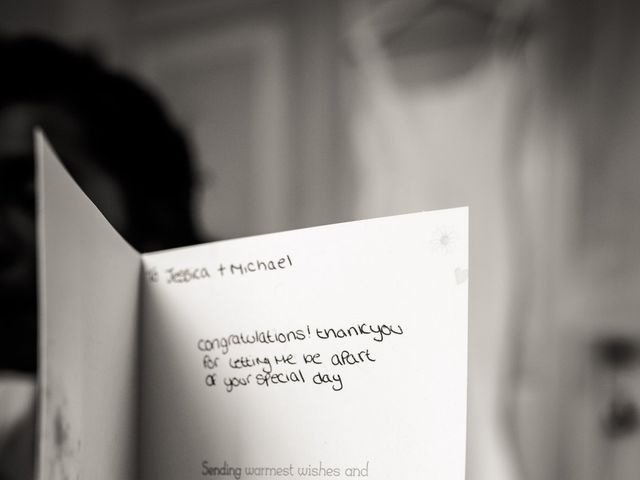 to Jessica + Michael
congratulations! thankyou
for letting me be apart
of your special day
Sending warmest wishes and